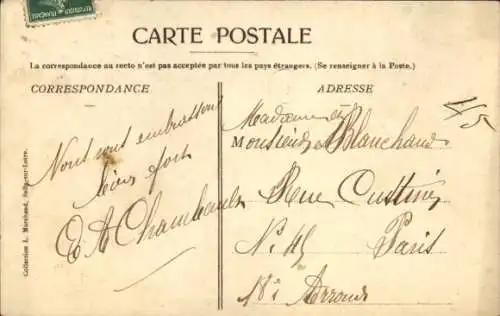 CARTE POSTALE
La correspondance au recto n'est pas acceptée par tous les pays étrangers. (Se renseigner à la Poste.)
CORRESPONDANCE
Nous vous embrassons
bien fort
ADRESSE
Madame et
Monsieur Blanchard
Rue Custine
N° 45
Paris
18e Arrond
Collection L. Marchand, Sully-sur-Loire.